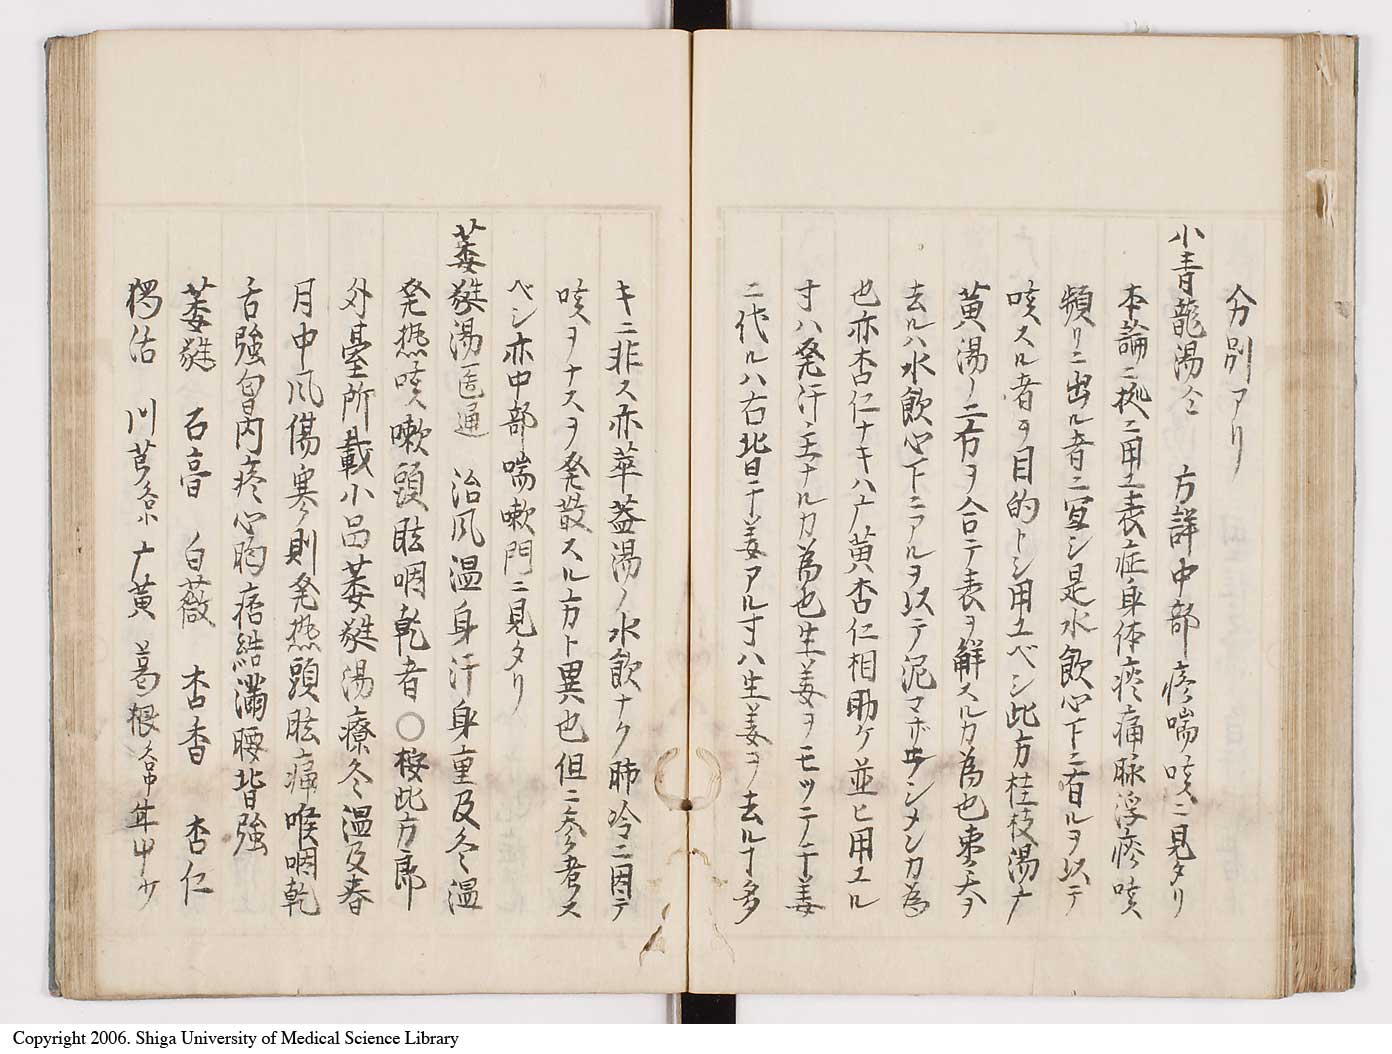 分別アリ
小青龍湯仝 方詳中部痰喘咳ニ見タリ
本論ニ拠ニ用エ表症身体疼痛脉浮痰咳
頻リニ出ル者ニ宜シ是水飲心下ニ畜ルヲ以テ
咳スル者ヲ目的トシ用ユベシ此方桂枝湯广
黄湯ノ二方ヲ合テ表ヲ觧スルカ為也棗ヲ
去ルハ水飲心下ニアルヲ以テ泥マザラシメンカ為
也亦杏仁ナキハ广黄杏仁相助ケ並ヒ用ユル
寸ハ発汗主ナルカ為也生姜ヲモツテ干姜
ニ代ルハ右皆干姜アル寸ハ生姜ヲ去ルヿ多
キニ非ス亦苹姜湯ノ水飲ナク肺冷ニ因テ
咳ヲナスヲ発散スル方ト異也但ニ参考ス
ベシ亦中部喘嗽門ニ見タリ
萎蕤湯医通 治風温身汗身重及冬温
発熱咳嗽頭眩咽乾者〇桉此方郎
外臺所載小品萎蕤湯療冬温及春
月中風傷寒則発熱頭眩痛喉咽乾
舌強胷内疼心胸痞結滿腰背強
萎蕤 石膏 白薇 木香 杏仁
獨活 川芎各小 广黄 葛根各中 耳中少